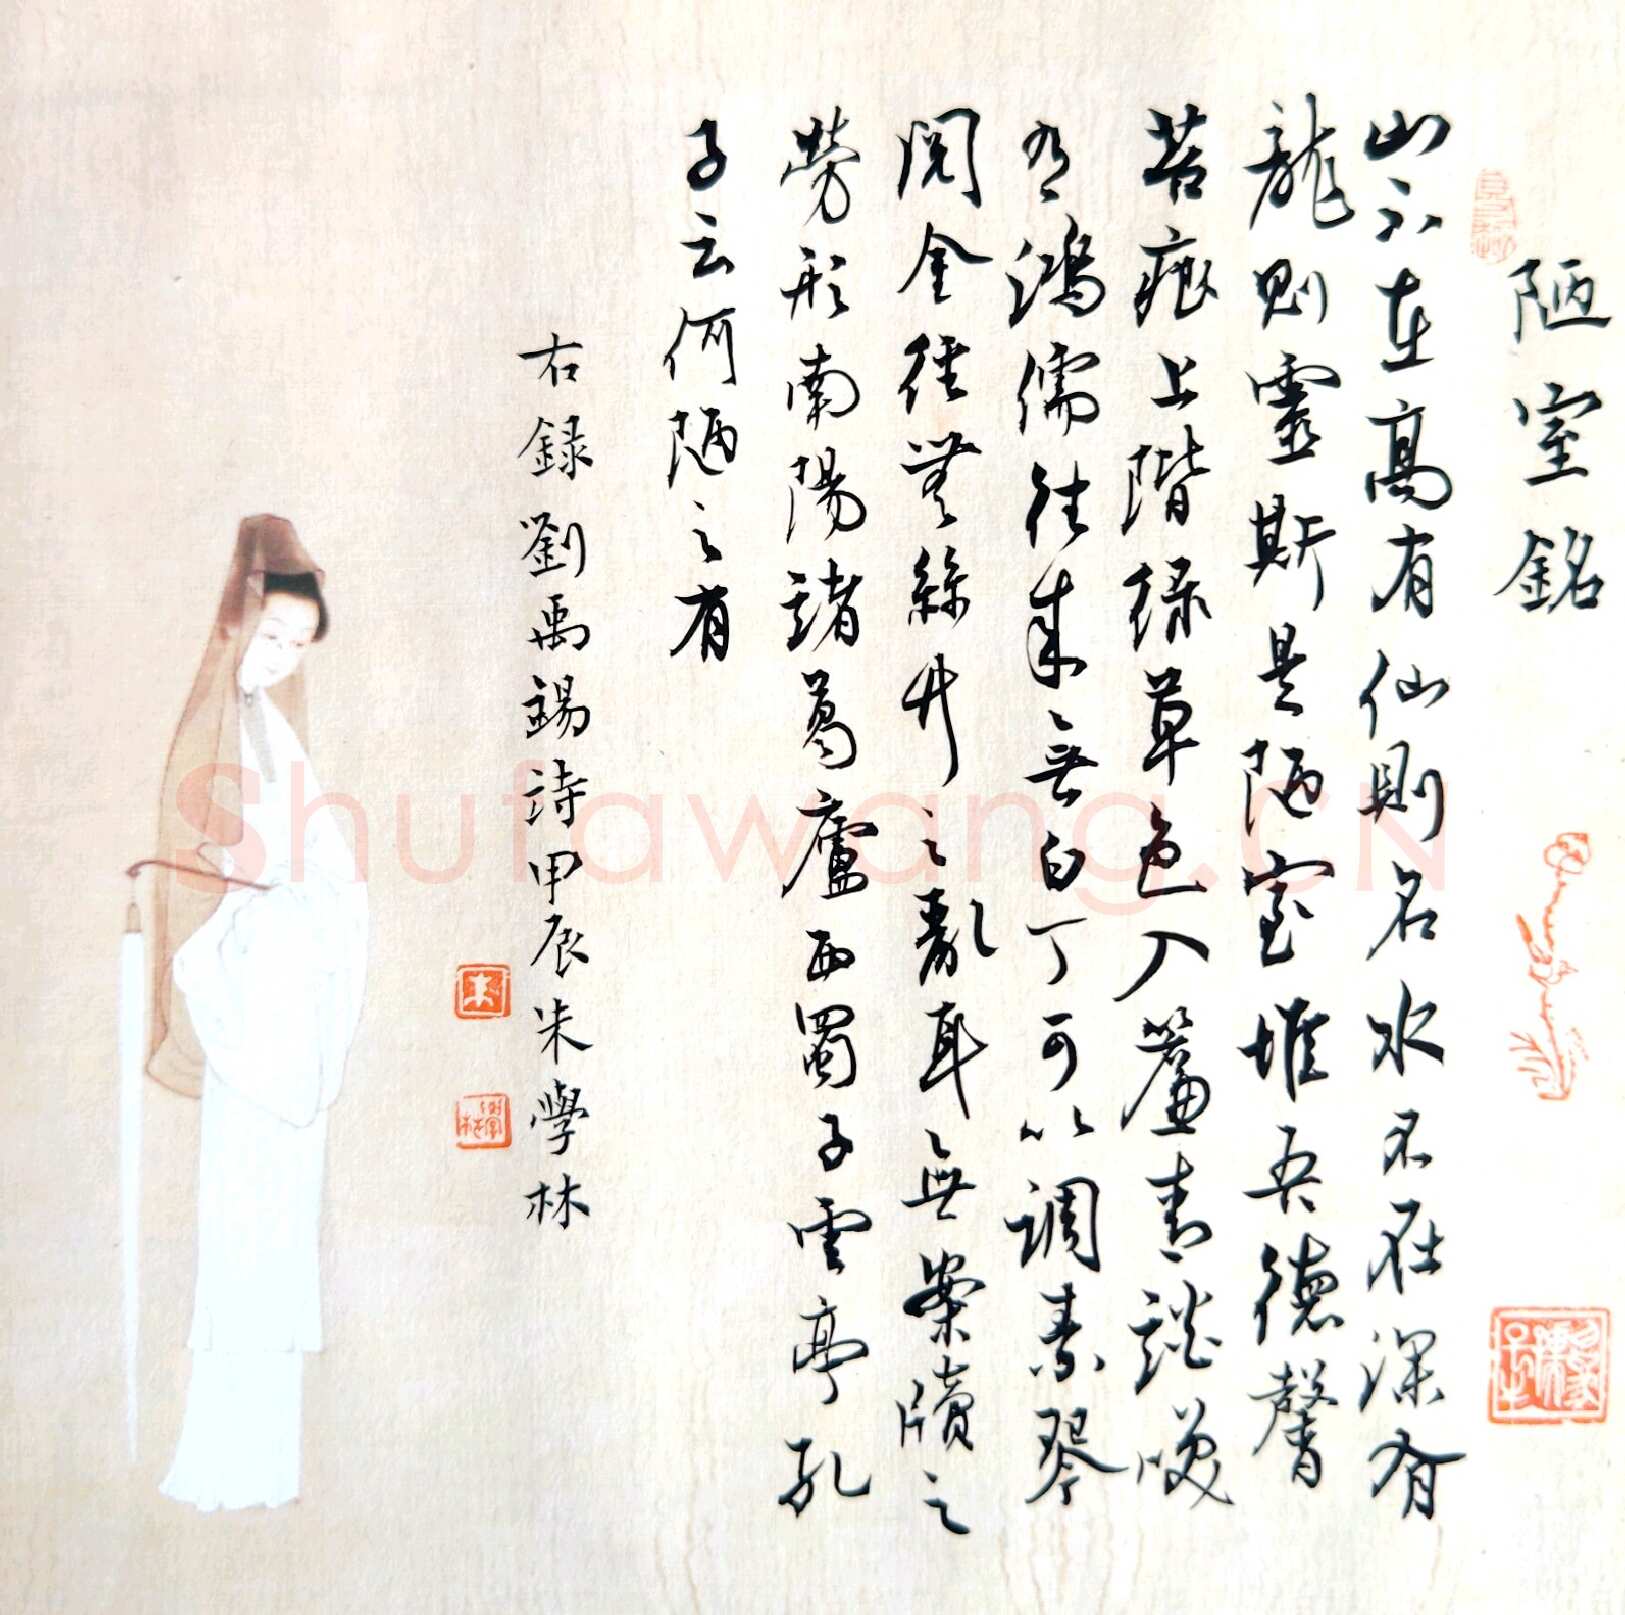 陋室銘
山不在高有仙則名水不在深有
龍則靈斯是陋室惟吾德馨
苔痕上階綠草色入簾青談笑
有鴻儒往來無白丁可以調素琴
閱金經無絲竹之亂耳無案牘之
勞形南陽諸葛廬西蜀子雲亭孔
子云何陋之有
右録劉禹錫詩甲辰朱學林
朱
學林
Shufawang.CN